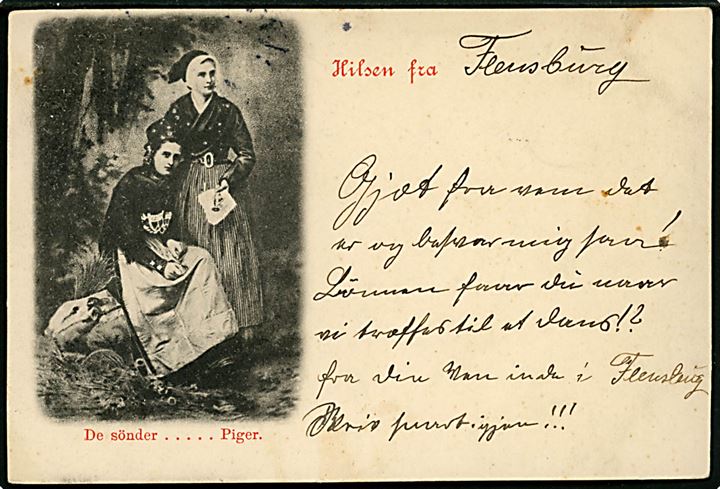 Hilsen fra Flensburg
Gjæt fra vem det
er og besvar mig saa!
Lönnen faar du naar
vi træffes til et dans!?
fra din Ven inde i Flensburg
Skriv snart igjen!!!
De sönder ..... Piger.